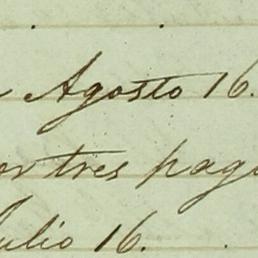 Agosto 16.
or tres pag
Julio 16.